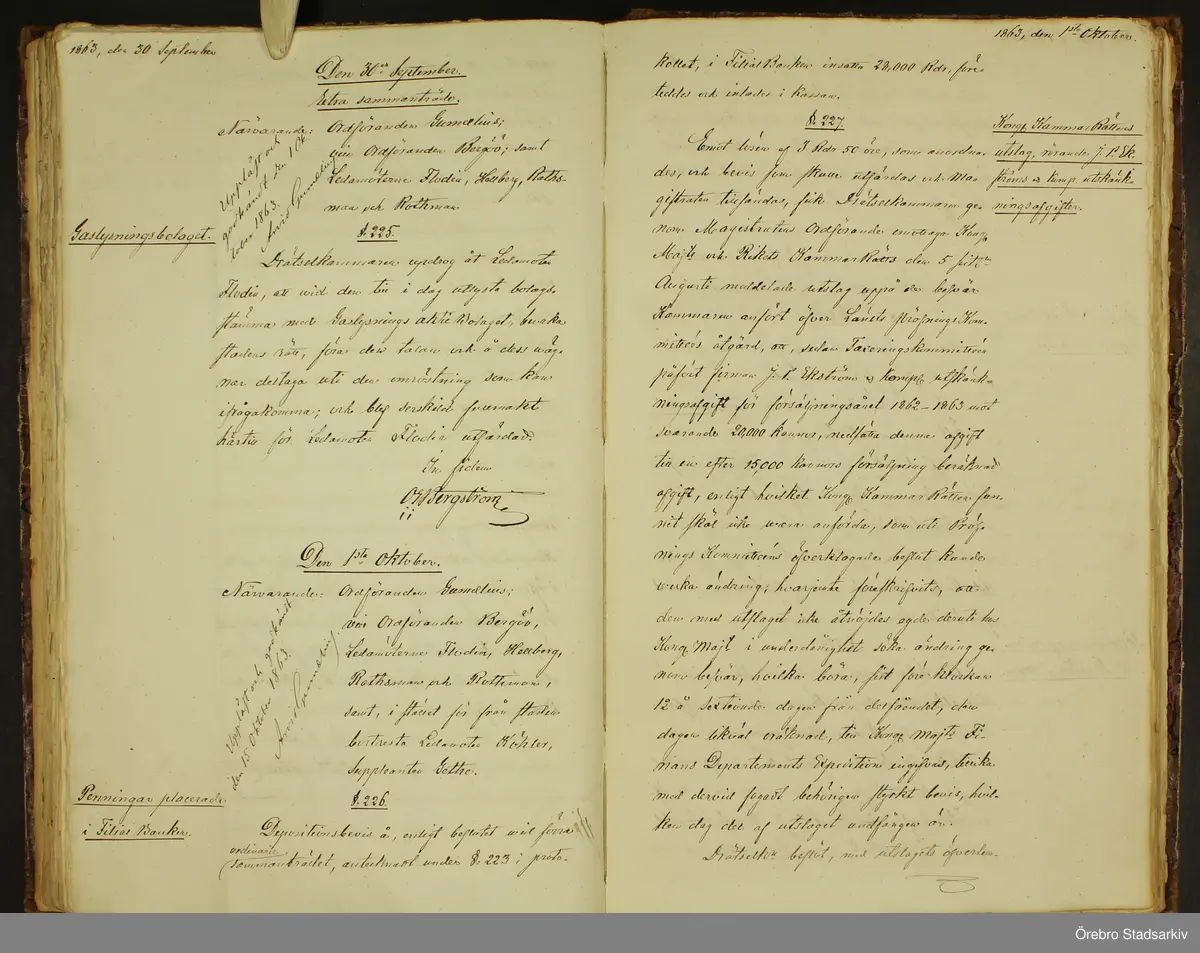 1863, den 30 September
Den 30de September.
Extra sammanträde.
Närvarande: Ordföranden Gumælius;
vice Ordföranden Bergöö; samt
Ledamöterne Flodin, Hellberg, Raths-
man och Rothman
Uppläst och
godkändt den 1 Ok-
tober 1863.
Arvid Gumælius
Gaslysningsbolaget.
§. 225.
Drätselkammaren updrog åt Ledamoten
Flodin, att wid den till i dag utlysta bolags-
stämma med Gaslysnings aktie Bolaget, bevaka
stadens rätt, föra dess talan och å dess wäg-
nar deltaga uti den omröstning som kan
ifrågakomma; och blef serskild fullmakt
härtill för Ledamoten Flodin utfärdad.
In fidem
Bergström
Den 1sta Oktober.
Närvarande: Ordföranden Gumælius;
vice Ordföranden Bergöö,
Ledamöterne Flodin, Hellberg,
Rathsman och Rothman,
samt, i stället för från staden
bortresta Ledamoten Köhler,
Suppleanten Gethe.
Uppläst och godkändt
den 15 Oktober 1863.
Arvid Gumælius
Penningar placerade
i Filial Banken.
§. 226.
Depositionsbevis å, enligt beslutet wid förra
ordinarie
sammanträdet, antecknadt under §. 223 i proto-
1863, den 1sta Oktober.
kollet, i Filial Banken insatta 20,000 Rdr, före-
teddes och inlades i Kassan.
§. 227.
Kongl. Kammar Rättens
utslag, rörande J. P. Ek-
ströms & Komp. utskänk-
ningsafgifter.
Emot lösen af 3 Rdr 50 öre, som anordna-
des, och bevis som skulle utfärdas och Ma-
gistraten tillsändas, fick Drätselkammaren ge-
nom Magistratens Ordförande emottaga Kongl.
Majts och Rikets Kammar Rätts den 5 sistl.
Augusti meddelade utslag uppå de besvär
Kammaren anfört öfver Länets pröfnings Kom-
mittées åtgärd, att, sedan Taxeringskommittéen
påfört firman J. P. Ekström & Komp. utskänk-
ningsafgift för försäljningsåret 1862-1863 mot
svarande 20,000 kannor, nedsätta denna afgift
till en efter 15,000 kannors försäljning beräknad
afgift, enligt hvilket Kongl. Kammar Rätten fun-
nit skäl icke wara anförda, som uti Pröf-
nings Kommittéens öfverklagade beslut kunde
werka ändring; hvarjemte föreskrifvits, att
den med utslaget icke åtnöjdes egde derute hos
Kongl. Majt i underdånighet söka ändring ge-
nom besvär, hvilka böra, sist före klockan
12 å sextionde dagen från delfåendet, den
dagen likväl oräknad, till Kongl. Majts Fi-
nans Departements Expedition ingifvas, tillika
med dervid fogadt behörigen styrkt bevis, hvil-
ken dag del af utslaget undfången är.
Drätselkn beslöt, med utslagets öfverlem-
Örebro Stadsarkiv